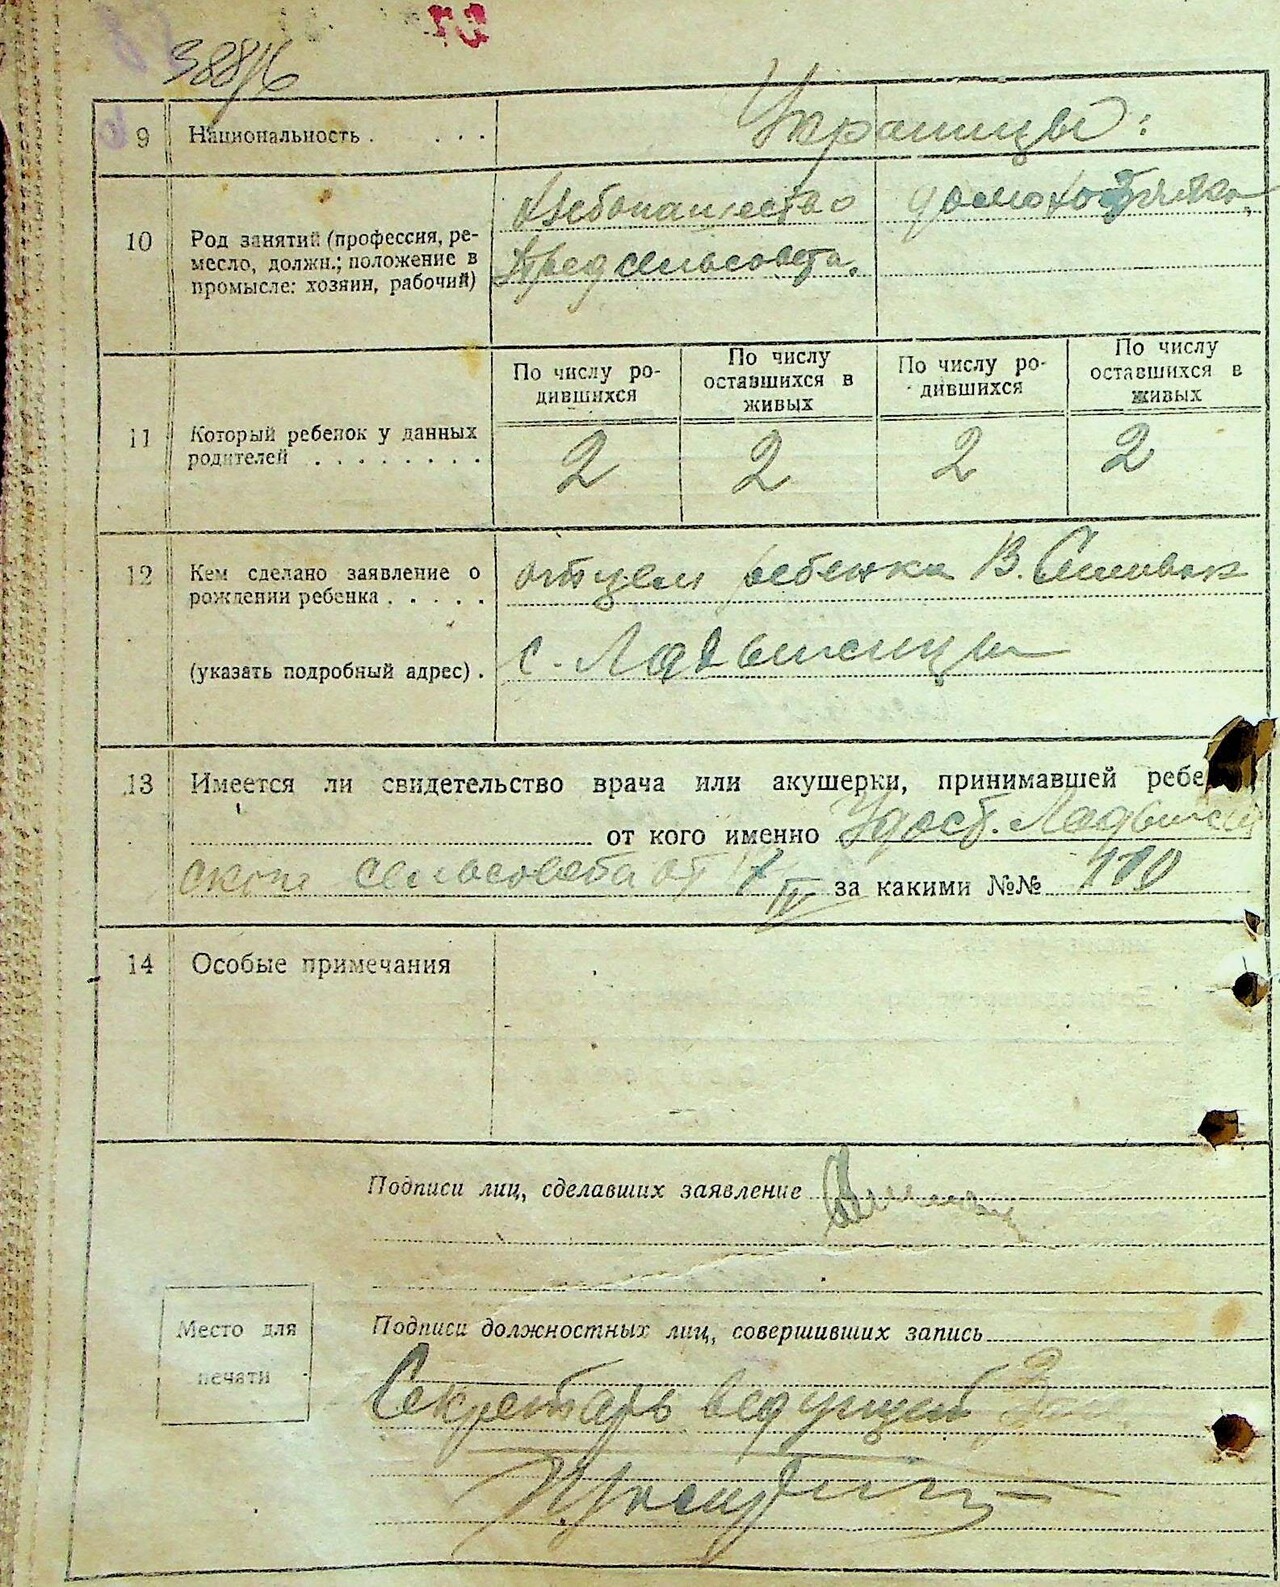 388/6
9 Национальность . . . . Украинцы:
10 Род занятий (профессия, ре-
месло, должн.; положение в
промысле: хозяин, рабочий)
Хлебопашество
Предсельсовета.
домохозяйка,
11 Который ребенок у данных
родителей . . . . . . . .
По числу ро-
дившихся
По числу
оставшихся в
живых
По числу ро-
дившихся
По числу
оставшихся в
живых
2 2 2 2
12 Кем сделано заявление о
рождении ребенка . . . . .
отцем ребенка В.
(указать подробный адрес) .
с.
13 Имеется ли свидетельство врача или акушерки, принимавшей ребе
от кого именно Удост.
ского сельсовета от IV за какими №№
14 Особые примечания
Подписи лиц, сделавших заявление
Место для
печати
Подписи должностных лиц, совершивших запись
Секретарь ведущей